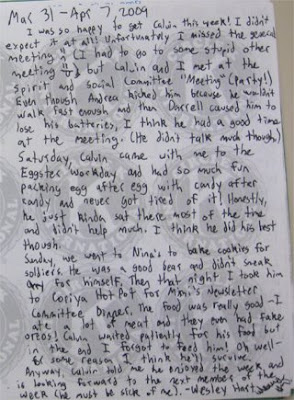 Mar 31 - Apr 7, 2009
I was so happy to get Calvin this week! I didn't
expect it at all! Unfortunately I missed the general
meeting (I had to go to some stupid other
meeting), but Calvin and I met at the
Spirit and Social Committee "Meeting" (Party!)
Even though Andrea kicked him because he wouldn't
walk fast enough and then Darrell caused him to
lose his batteries, I think he had a good time
at the meeting. (He didn't talk much though)
Saturday, Calvin came with me to the
Eggstee Workday, and had so much fun
packing egg after egg with candy after
candy and never got tired of it! Honestly,
he just kinda sat there most of the time
and didn't help much. I think he did his best
though.
Sunday, we went to Nina's to bake cookies for
soldiers. He was a good bear and didn't sneak
any for himself. Then that night I took him
to Coriya Hot Pot for Mimi's Newsletter
Committee Dinner. The food was really good - I
ate a lot of meat and they even had fake
oreos! Calvin waited patiently for his food but
in the end I forgot to feed him! Oh well -
for some reason I think he'll survive.
Anyway, Calvin told me he enjoyed the week and
is looking forward to the next members of the
week (he must be sick of me). -Wesley Hart